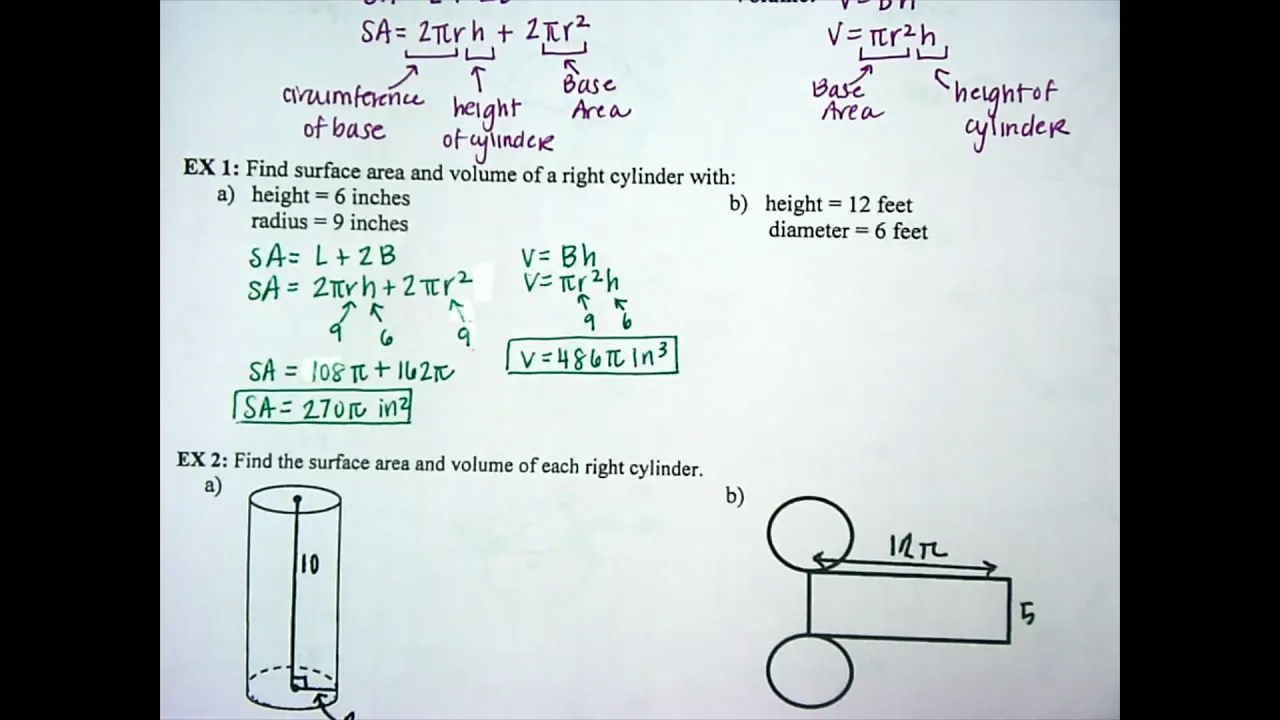 SA = 2πrh + 2πr²
circumference
of base
height
of cylinder
Base
Area
V = πr²h
Base
Area
height of
cylinder
EX 1: Find surface area and volume of a right cylinder with:
a) height = 6 inches
radius = 9 inches
SA = L + 2B
SA = 2πrh + 2πr²
9 6 9
SA = 108π + 162π
SA = 270π in²
V = Bh
V = πr²h
9 6
V = 486π in³
b) height = 12 feet
diameter = 6 feet
EX 2: Find the surface area and volume of each right cylinder.
a)
10
b)
12π
5